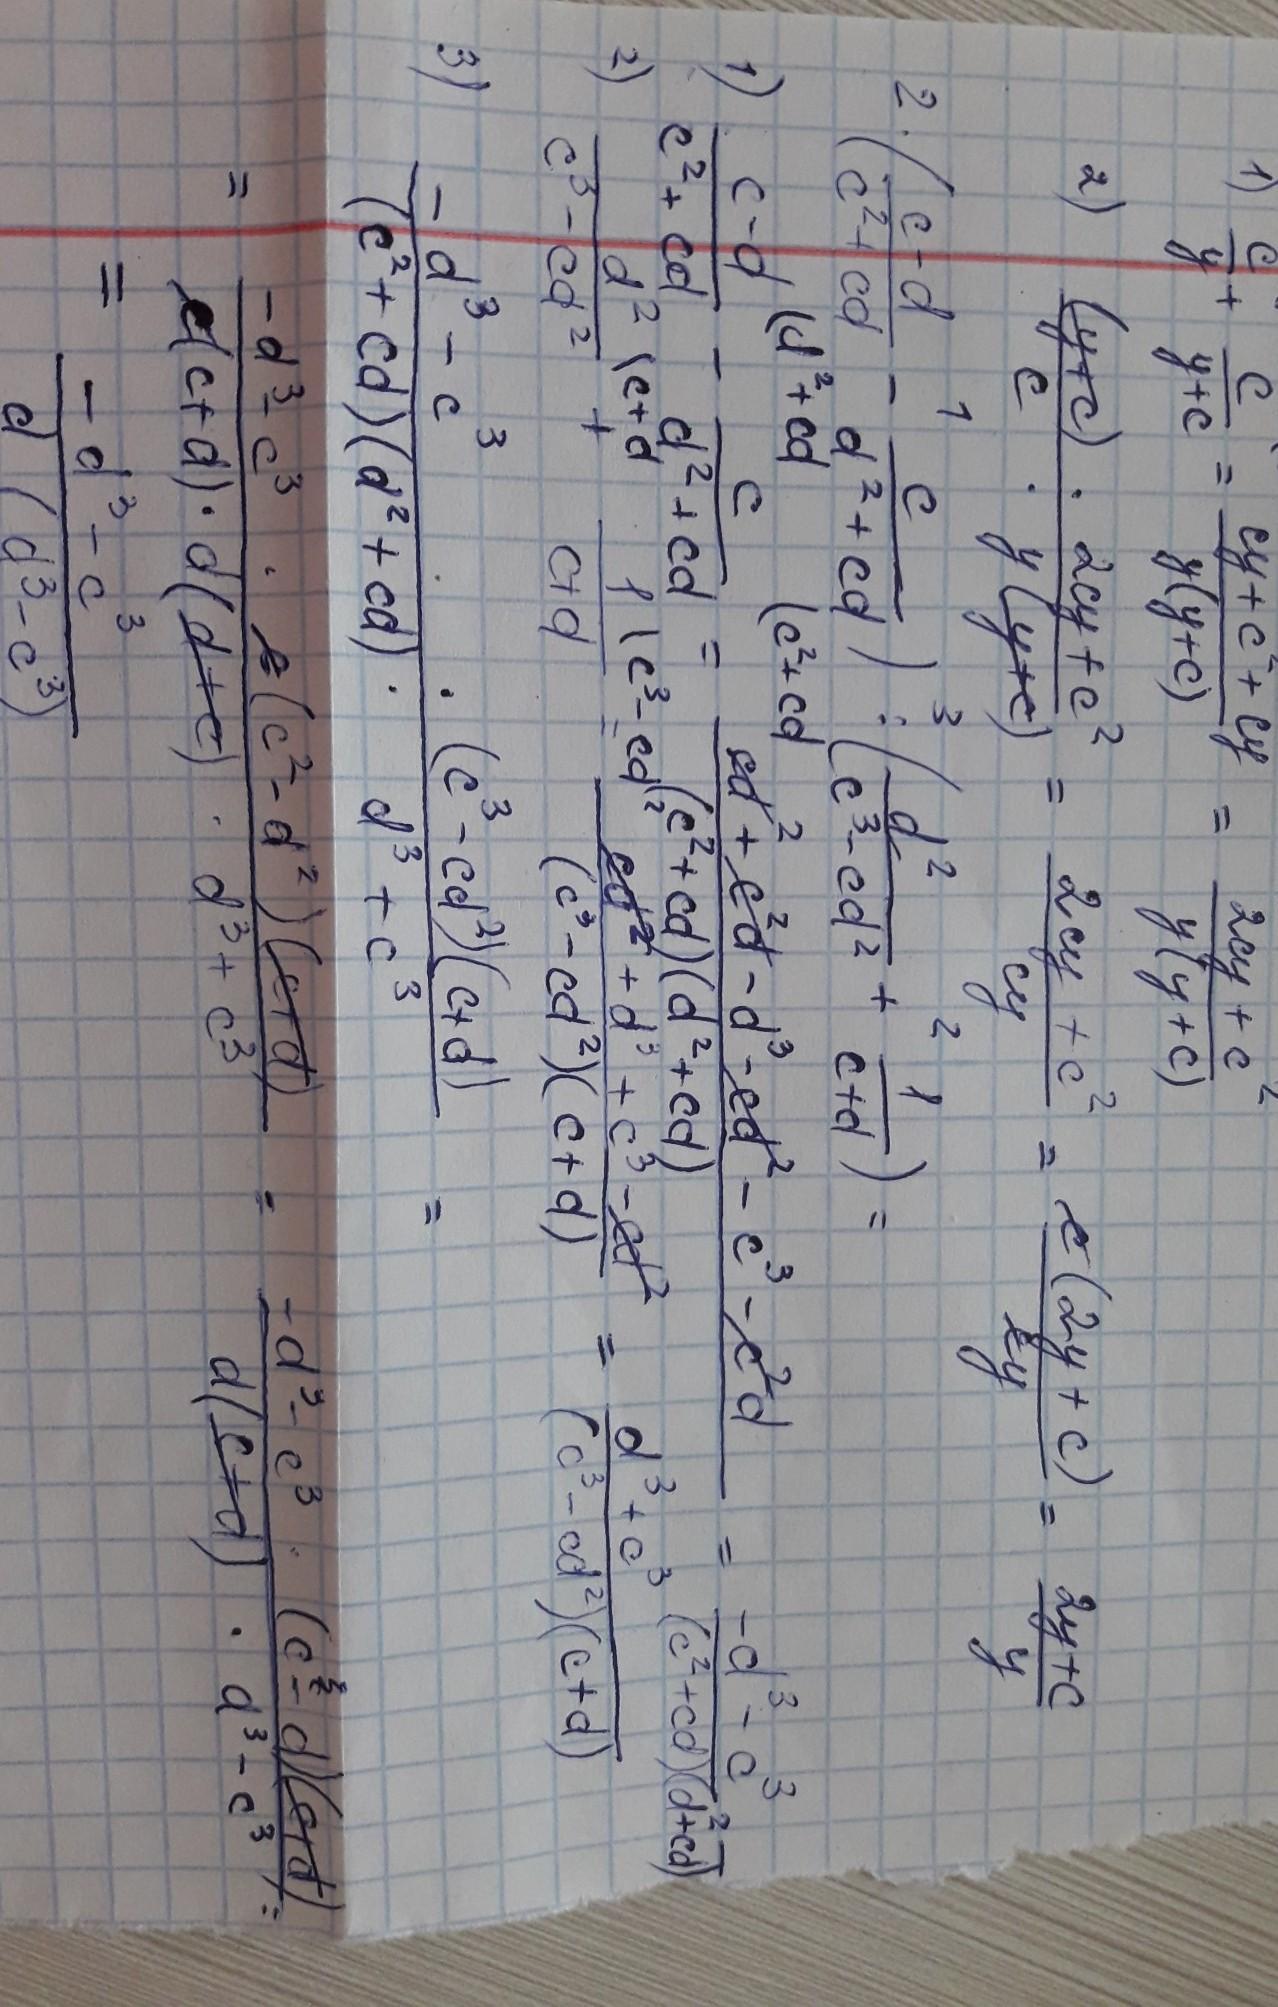 1) c/y + c/(y+c) = (cy + c² + cy)/(y(y+c)) = (2cy + c²)/(y(y+c))
2) (y+c)/c · (2cy + c²)/(y(y+c)) = (2cy + c²)/(cy) = c(2y + c)/(cy) = (2y+c)/y
2. ((c-d)/(c²+cd) - c/(d²+cd)) : (d²/(c³-cd²) + 1/(c+d)) =
1) (c-d)/(c²+cd) (d²+cd - c/(d²+cd) (c²+cd = (cd² + c²d - d³ - cd² - c³ - c²d)/((c²+cd)(d²+cd)) = (-d³ - c³)/((c²+cd)(d²+cd))
2) d²/(c³-cd²) (c+d + 1/(c+d) (c³-cd² = (cd² + d³ + c³ - cd²)/((c³-cd²)(c+d)) = (d³ + c³)/((c³-cd²)(c+d))
3) (-d³ - c³ · (c³-cd²)(c+d))/((c²+cd)(d²+cd) · d³ + c³) =
= (-d³ - c³ · c(c²-d²)(c+d))/(c(c+d) · d(d+c) · d³ + c³) = (-d³ - c³ · (c-d)(c+d))/(d(c+d) · d³ - c³) =
= (-d³ - c³)/(d(d³-c³)